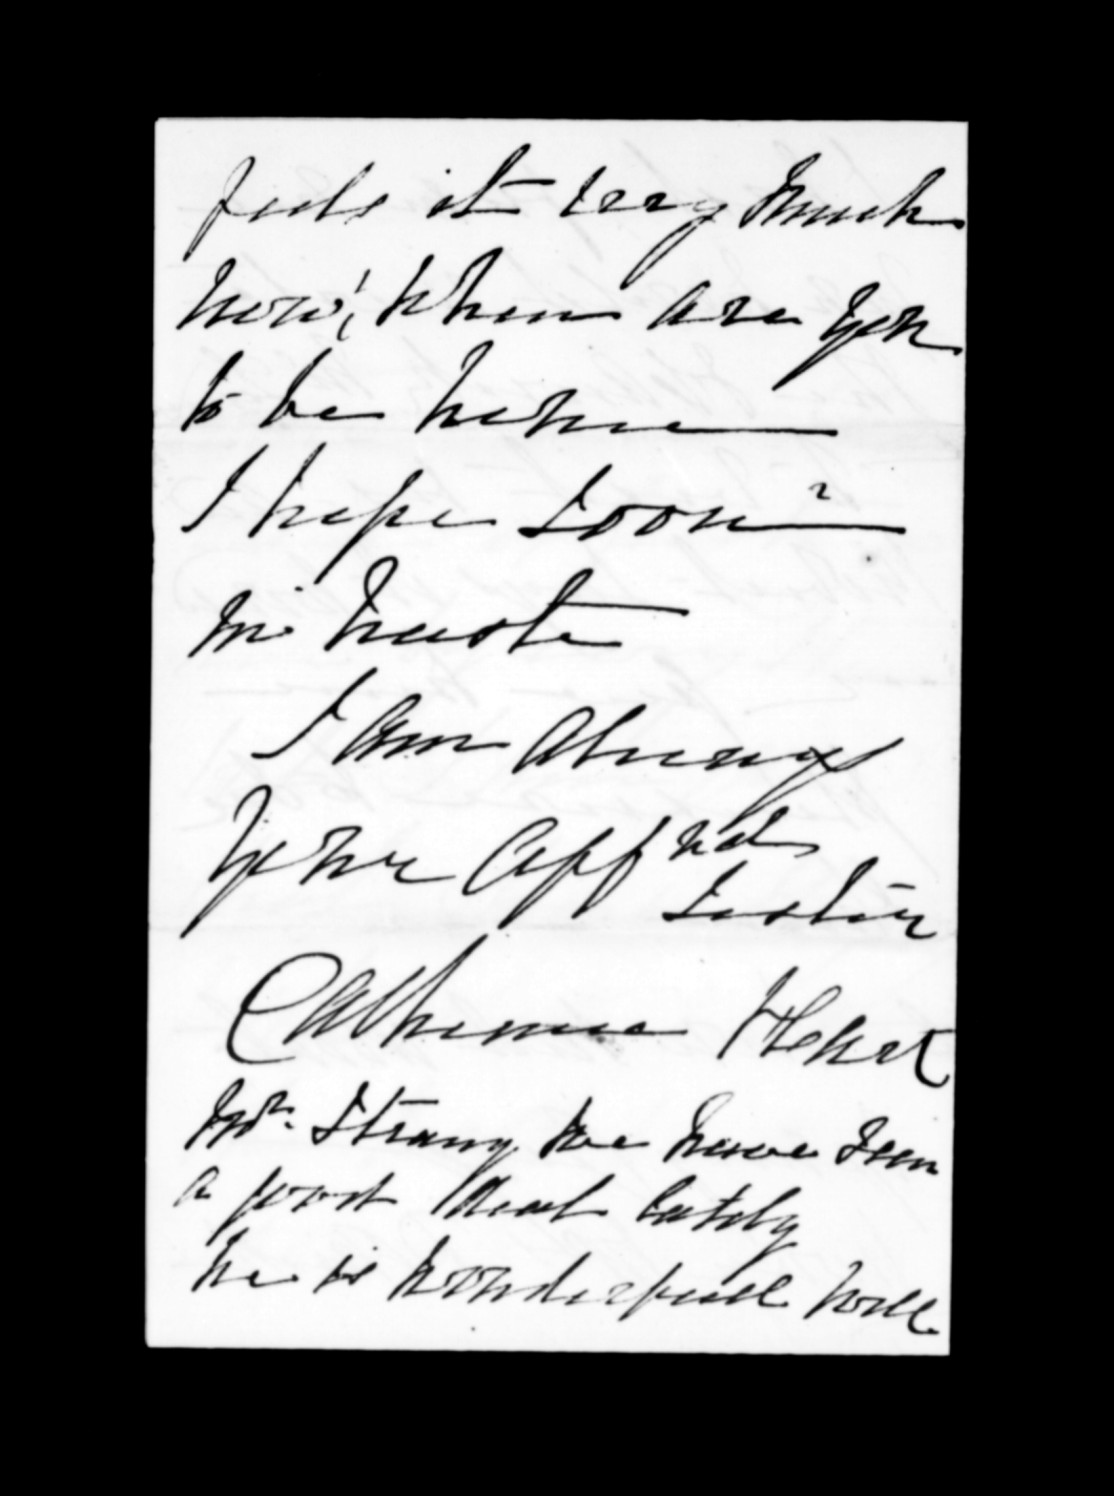 feels it very much
now, when are you
to be home
I hope soon?
in haste
I am always
Your Aff
Sister
Catherine Hart
Mr. Strang we have seen
a good deal lately
he is wonderfull well